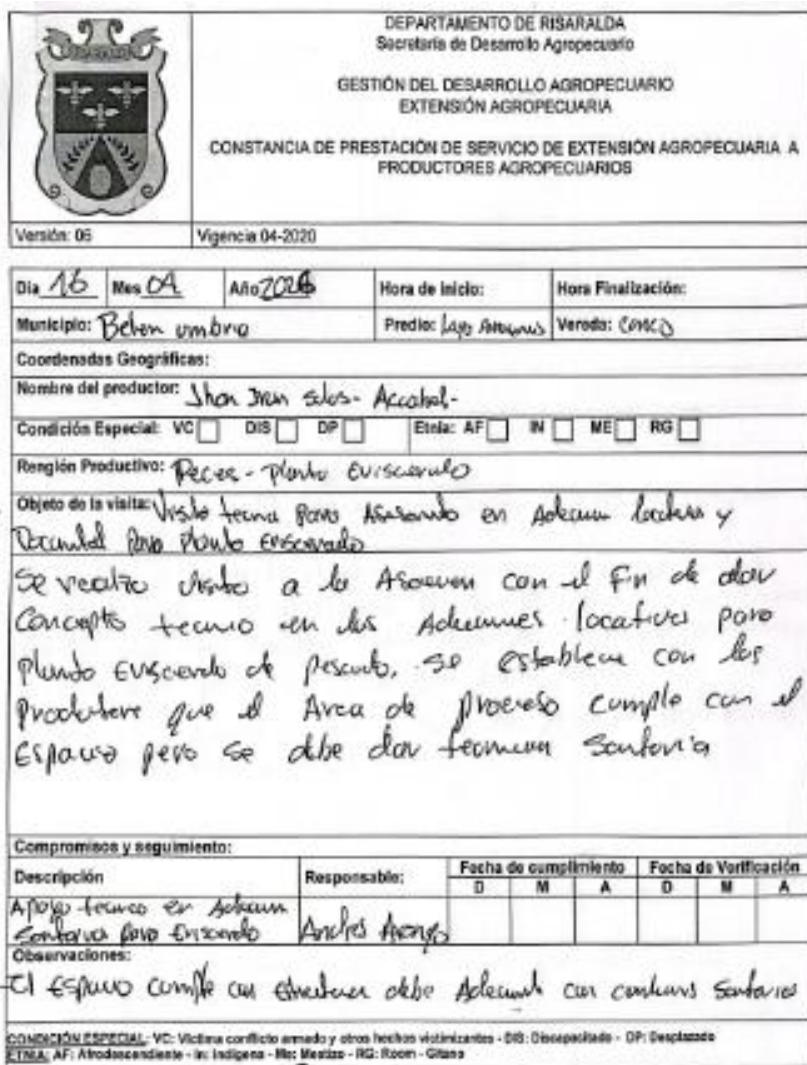 DEPARTAMENTO DE RISARALDA
Secretaría de Desarrollo Agropecuario
GESTIÓN DEL DESARROLLO AGROPECUARIO
EXTENSIÓN AGROPECUARIA
CONSTANCIA DE PRESTACIÓN DE SERVICIO DE EXTENSIÓN AGROPECUARIA A
PRODUCTORES AGROPECUARIOS
Versión: 06 Vigencia 04-2020
Dia 16 Mes 04 Año 2026 Hora de inicio: Hora Finalización:
Municipio: Belen umbria Predio: Lago Vereda:
Coordenadas Geográficas:
Nombre del productor: Jhon
Condición Especial: VC DIS DP Etnia: AF IN ME RG
Renglón Productivo: Peces - Planta Eviscerado
Objeto de la visita: Visita tecnica para en y
para Planta Eviscerado
Se realizo visita a la con el fin de dar
Concepto tecnico en las locativas para
planta Eviscerado de pescado, se establece con los
que el Area de proceso cumple con el
Espacio pero se debe dar Sanitaria
Compromisos y seguimiento:
Descripción Responsable: Fecha de cumplimiento Fecha de Verificación
D M A D M A
Apoyo tecnico en
Sanitaria para Eviscerado Andres Arango
Observaciones:
El Espacio cumple con debe con Sanitarios
CONDICIÓN ESPECIAL: VC: Víctima conflicto armado y otros hechos victimizantes - DIS: Discapacitado - DP: Desplazado
ETNIA: AF: Afrodescendiente - In: Indígena - Me: Mestizo - RG: Room - Gitano